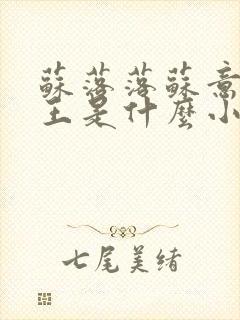 蘇落落蘇意
王是什麼小
七尾美緒